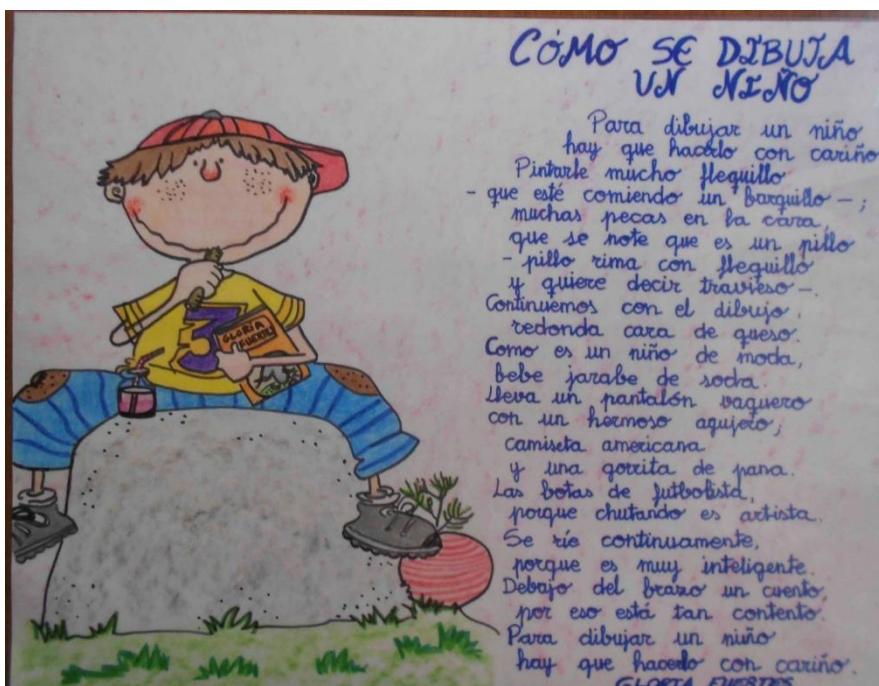 CÓMO SE DIBUJA
UN NIÑO
Para dibujar un niño
hay que hacerlo con cariño
Pintarle mucho flequillo
- que esté comiendo un barquillo -;
muchas pecas en la cara,
que se note que es un pillo
- pillo rima con flequillo
y quiere decir travieso -.
Continuemos con el dibujo,
redonda cara de queso.
Como es un niño de moda,
bebe jarabe de soda.
Lleva un pantalón vaquero
con un hermoso agujero;
camiseta americana
y una gorrita de pana.
Las botas de futbolista,
porque chutando es artista.
Se ríe continuamente,
porque es muy inteligente.
Debajo del brazo un cuento,
por eso está tan contento.
Para dibujar un niño
hay que hacerlo con cariño.
GLORIA FUERTES
3
GLORIA
FUERTES